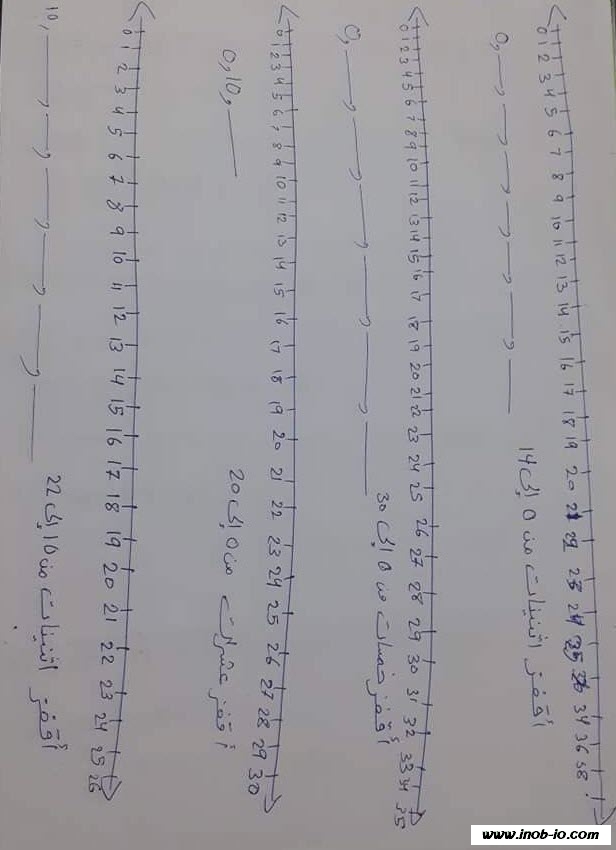 0 1 2 3 4 5 6 7 8 9 10 11 12 13 14 15 16 17 18 19 20 21 22 23 24 25 26 34 36 38
0, __, __, __, __, __, __, __ أقفز اثنينات من 0 إلى 14
0 1 2 3 4 5 6 7 8 9 10 11 12 13 14 15 16 17 18 19 20 21 22 23 24 25 26 27 28 29 30 31 32 33 34 35
0, __, __, __, __, __, __ أقفز خمسات من 0 إلى 30
0 1 2 3 4 5 6 7 8 9 10 11 12 13 14 15 16 17 18 19 20 21 22 23 24 25 26 27 28 29 30
0, 10, __ أقفز عشرات من 0 إلى 20
0 1 2 3 4 5 6 7 8 9 10 11 12 13 14 15 16 17 18 19 20 21 22 23 24 25 26
10, __, __, __, __, __, __ أقفز اثنينات من 10 إلى 22
www.inob-io.com